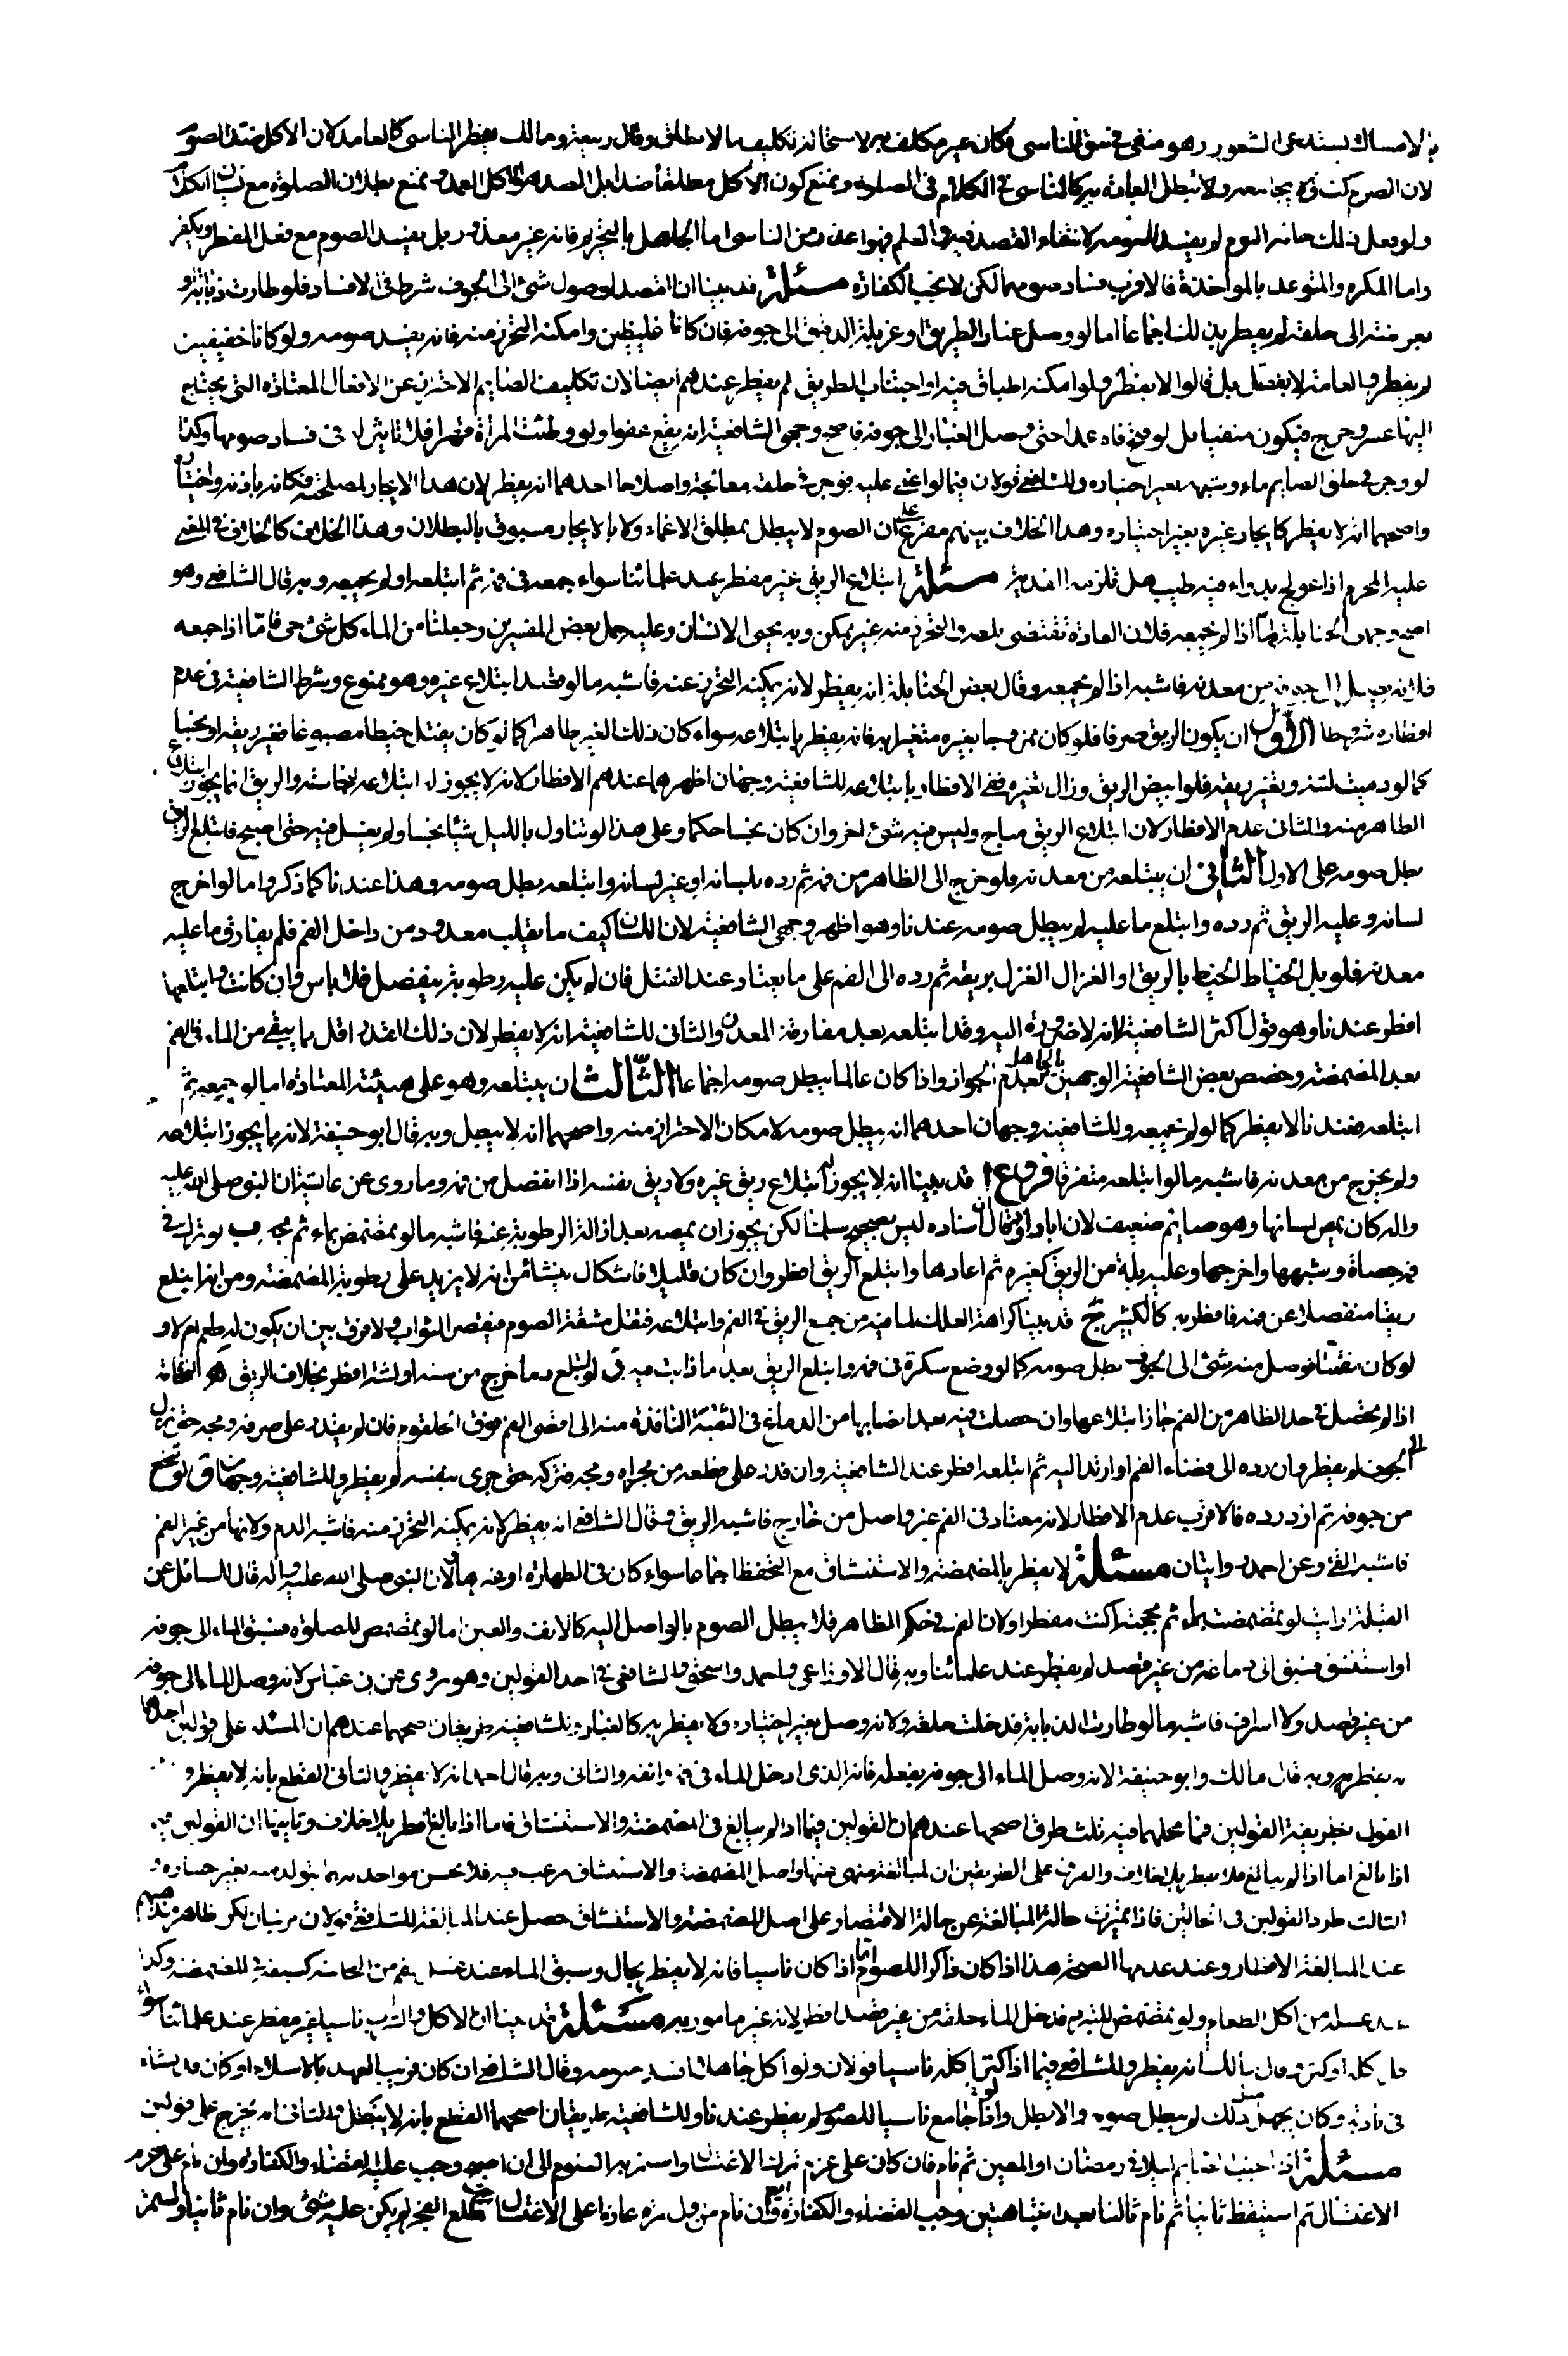 بالامساك يستدعى الشعور وهو منفى فى حق الناسى فكان غير مكلف به لاستحالة تكليف ما لا يطاق وقال ربيعة ومالك يفطر الناسى كالعامد لان الاكل ضد الصوم
لان الصوم كف ولا يجامعه ولا تبطل العبادة به كالناسى فى الكلام فى الصلوة ونمنع كون الاكل مطلقا ضدا بل الضد هو الاكل العمد ونمنع بطلان الصلوة مع نسيان الكلام
ولو فعل ذلك حالة النوم لم يفسد صومه لانتفاء القصد فيه والعلم فهو اعذر من الناسى اما الجاهل بالتحريم فانه غير معذور بل يفسد الصوم مع فعل المفطر ويكفر
واما المكره والمتوعد بالمواخذة فالاقرب فساد صومهما لكن لا تجب الكفارة مسئلة قد بينا ان القصد لوصول شئ الى الجوف شرط فى الافساد فلو طارت ذبابة او
بعوضة الى حلقه لم يفطر بذلك اجماعا اما لو وصل غبار الطريق او غربلة الدقيق الى جوفه فان كانا غليظين وامكنه التحرز منه فانه يفسد صومه ولو كانا خفيفين
لم يفطر والعامة لم يفصل بل قالوا لا يفطر ولو امكنه اطباق فيه او اجتناب الطريق لم يفطر عندهم ايضا لان تكليف الصايم الاحتراز عن الافعال المعتادة التى يحتاج
اليها عسر وحرج فيكون منفيا بل لو فتح فاه عمدا حتى وصل الغبار الى جوفه فاصح وجهى الشافعية انه يقع عفوا ولو وطئت المرأة قهرا فلا تاثير له فى فساد صومها وكذا
لو وجر فى حلق الصايم ماء وشبهه بغير اختياره وللشافعى قولان فيما لو اغمى عليه فوجر فى حلقه معالجة واصلاحا احدهما انه يفطر لان هذا الايجار لمصلحته فكانه باذنه واختياره
واصحهما انه لا يفطر كايجار غيره بغير اختياره وهذا الخلاف بينهم مفرع على ان الصوم لا يبطل بمطلق الاغماء والا فالايجار مسبوق بالبطلان وهذا الخلاف كالخلاف فى المغمى
عليه المحرم اذا عولج بدواء فيه طيب هل تلزمه الفدية مسئلة ابتلاع الريق غير مفطر عند علمائنا سواء جمعه فى فمه ثم ابتلعه او لم يجمعه وبه قال الشافعى وهو
اصح وجهى الحنابلة اما اذا لم يجمعه فلان العادة تقتضى بلعه والتحرز منه غير ممكن وبه يحيى الانسان وعليه حمل بعض المفسرين وجعلنا من الماء كل شئ حى فامّا اذا جمعه
فلانه يصل الى جوفه من معدنه فاشبه اذا لم يجمعه وقال بعض الحنابلة انه يفطر لانه يمكنه التحرز عنه فاشبه ما لو قصد ابتلاع غيره وهو ممنوع وشرط الشافعية فى عدم
افطاره شروطا الاول ان يكون الريق صرفا فلو كان ممزوجا بغيره متغيرا به فانه يفطر بابتلاعه سواء كان ذلك الغير طاهرا كما لو كان يفتل خيطا مصبوغا فتغير ريقه او نجسا
كما لو دميت لثته وتغير ريقه فلو ابيض الريق وزال تغيره ففى الافطار بابتلاعه للشافعية وجهان اظهرهما عندهم الافطار لانه لا يجوز له ابتلاعه لنجاسته والريق انما يجوز ابتلاع
الطاهر منه والثانى عدم الافطار لان ابتلاع الريق مباح وليس فيه شئ اخر وان كان نجسا حكما وعلى هذا لو تناول بالليل شيئا نجسا ولم يغسل فيه حتى اصبح فابتلع الريق
بطل صومه على الاول الثانى ان يبتلعه من معدنه فلو خرج الى الظاهر من فمه ثم رده بلسانه او غير لسانه وابتلعه بطل صومه وهذا عندنا كما ذكروا ما لو اخرج
لسانه وعليه الريق ثم رده وابتلع ما عليه لم يبطل صومه عندنا وهو اظهر وجهى الشافعية لان اللسان كيف ما يقلب معدود من داخل الفم فلم يفارق ما عليه
معدنه فلو بل الخياط الخيط بالريق او الغزال الغزل بريقه ثم رده الى الفم على ما يعتاد عند الفتل فان لم يكن عليه رطوبة ينفصل فلا باس وان كانت وابتلعها
افطر عندنا وهو قول اكثر الشافعية لانه لا ضرورة اليه وقد ابتلعه بعد مفارقة المعدن والثانى للشافعية انه لا يفطر لان ذلك القدر اقل ما يبقى من الماء فى الفم
بعد المضمضة وخصص بعض الشافعية الوجهين بالجاهل بعدم الجواز واذا كان عالما يبطل صومه اجماعا الثّالث ان يبتلعه وهو على هيئته المعتادة اما لو جمعه ثم
ابتلعه فعندنا لا يفطر كما لو لم يجمعه وللشافعية وجهان احدهما انه يبطل صومه لامكان الاحتراز منه واصحهما انه لا يبطل وبه قال ابو حنيفة لانه مما يجوز ابتلاعه
ولم يخرج من معدنه فاشبه ما لو ابتلعه متفرقا فروع ا قد بينا انه لا يجوز له ابتلاع ريق غيره ولا ريق نفسه اذا انفصل من فمه وما روى عن عائشة ان النبى صلى الله عليه
واله كان يمص لسانها وهو صايم ضعيف لان ابا داود قال اسناده ليس بصحيح سلمنا لكن يجوز ان يمصه بعد ازالة الرطوبة عنه فاشبه ما لو تمضمض بماء ثم مجه ب لو ترك فى
فمه حصاة وشبهها واخرجها وعليه بلة من الريق كغيره ثم اعادها وابتلع الريق افطر وان كان قليلا فاشكال ينشا من انه لا يزيد على رطوبة المضمضة ومن انه ابتلع
ريقا منفصلا عن فمه فافطر به كالكثير ج قد بينا كراهة العلك لما فيه من جمع الريق فى الفم وابتلاعه فتقل مشقة الصوم فيقصر الثواب ولا فرق بين ان يكون له طعم ام لا و
لو كان مفتتا فوصل منه شئ الى الجوف بطل صومه كما لو وضع سكرة فى فمه وابتلع الريق بعد ما ذابت فيه د لو ابتلع دما خرج من سنه او لثته افطر بخلاف الريق ه النخامة
اذا لم تحصل فى حد الظاهر من الفم جاز ابتلاعها وان حصلت فيه بعد انصبابها من الدماغ فى الثقبة النافذة منه الى اقصى الفم فوق الحلقوم فان لم يقدر على صرفه ومجه حتى نزل
الى الجوف لم يفطر وان رده الى فضاء الفم او ارتد اليه ثم ابتلعه افطر عند الشافعية وان قدر على قطعه من مجراه ومجه فتركه حتى جرى بنفسه لم يفطر وللشافعية وجهان و لو تنخع
من جوفه ثم ازدرده فالاقرب عدم الافطار لانه معتاد فى الفم غير واصل من خارج فاشبه الريق وقال الشافعى انه يفطر لانه يمكنه التحرز منه فاشبه الدم ولانها من غير الفم
فاشبه القئ وعن احمد روايتان مسئلة لا يفطر بالمضمضة والاستنشاق مع التحفظ اجماعا سواء كان فى الطهارة او غيرها لان النبى صلى الله عليه واله قال للسائل عن
القبلة ارايت لو تمضمضت بماء ثم مججته اكنت مفطرا ولان الفم فى حكم الظاهر فلا يبطل الصوم بالواصل اليه كالانف والعين اما لو تمضمض للصلوة فسبق الماء الى جوفه
او استنشق فسبق الى دماغه من غير قصد لم يفطر عند علمائنا وبه قال الاوزاعى واحمد واسحق والشافعى فى احد القولين وهو مروى عن بن عباس لانه وصل الماء الى جوفه
من غير قصد ولا اسراف فاشبه ما لو طارت الذبابة فدخلت حلقه ولانه وصل بغير اختياره ولا يفطر به كالغبار وللشافعية طريقان اصحهما عندهم ان المسئلة على قولين احدهما
انه يفطر وبه قال مالك وابو حنيفة لانه وصل الماء الى جوفه بفعله فانه الذى ادخل الماء فى فمه وانفه والثانى وبه قال احمد انه لا يفطر والثانى القطع بانه لا يفطر و
القول بطريقة القولين فما محلهما فيه ثلث طرق اصحها عندهم ان القولين فيما اذا لم يبالغ فى المضمضة والاستنشاق فاما اذا بالغ افطر بلا خلاف وثانيها ان القولين فيه
اذا بالغ اما اذا لم يبالغ فلا يفطر بلا خلاف والفرق على الطريقين ان المبالغة منهى عنها واصل المضمضة والاستنشاق مرغب فيه فلا يحسن مواخذته بما يتولد منه بغير اختياره و
الثالث طرد القولين فى الحالتين فاذا ميزت حالة المبالغة عن حالة الاقتصار على اصل المضمضة والاستنشاق حصل عند المبالغة للشافعى قولان مرتبان لكن ظاهر مذهبهم
عند المبالغة الافطار وعند عدمها الصحة هذا اذا كان ذاكرا للصوم اما اذا كان ناسيا فانه لا يفطر بحال وسبق الماء عند غسل فمه من النجاسة كسبقه فى المضمضة وكذا
عند غسله من اكل الطعام ولو تمضمض للتبرد فدخل الماء حلقه من غير قصد افطر لانه غير مامور به مسئلة قد بينا ان الاكل والشرب ناسيا غير مفطر عند علمائنا سواء
قل اكله او كثر وقال مالك انه يفطر وللشافعى فيما اذا كثر اكله ناسيا قولان ولو اكل جاهلا فسد صومه وقال الشافعى ان كان قريب العهد بالاسلام او كان قد نشاء
فى بادية وكان يجهل مثل ذلك لم يبطل صومه والا بطل ولو جامع ناسيا للصوم لم يفطر عندنا وللشافعية طريقان اصحهما القطع بانه لا يبطل والثانى انه يخرج على قولين
مسئلة اذا اجنب الصايم ليلا فى رمضان او المعين ثم نام فان كان على عزم ترك الاغتسال واستمر به النوم الى ان اصبح وجب عليه القضاء والكفارة وان نام على عزم
الاغتسال ثم استيقظ ثانيا ثم نام ثالثا بعد انتباهتين وجب القضاء والكفارة ايضا وان نام من اول مرة عازما على الاغتسال حتى طلع الفجر لم يكن عليه شئ وان نام ثانيا واستمر